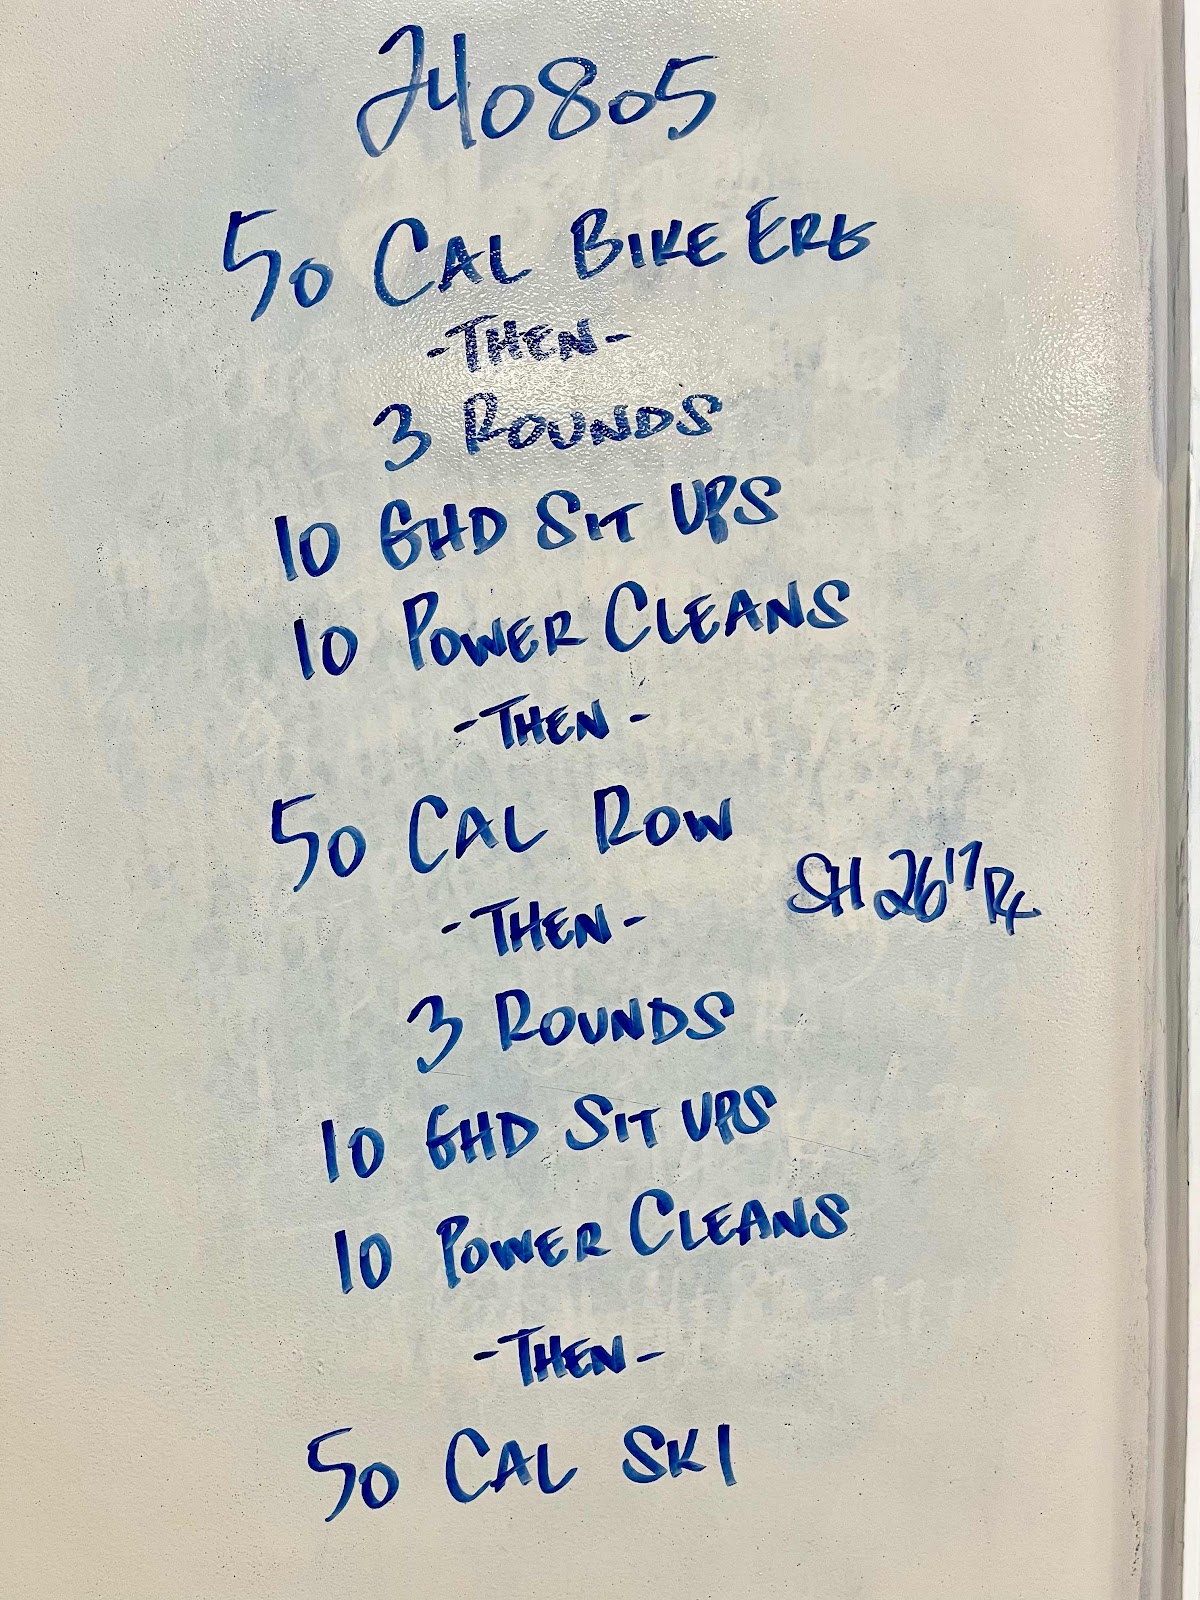 240805
50 CAL BIKE ERG
-THEN-
3 ROUNDS
10 GHD SIT UPS
10 POWER CLEANS
-THEN-
50 CAL ROW
SH 26¹⁷ Rx
-THEN-
3 ROUNDS
10 GHD SIT UPS
10 POWER CLEANS
-THEN-
50 CAL SKI